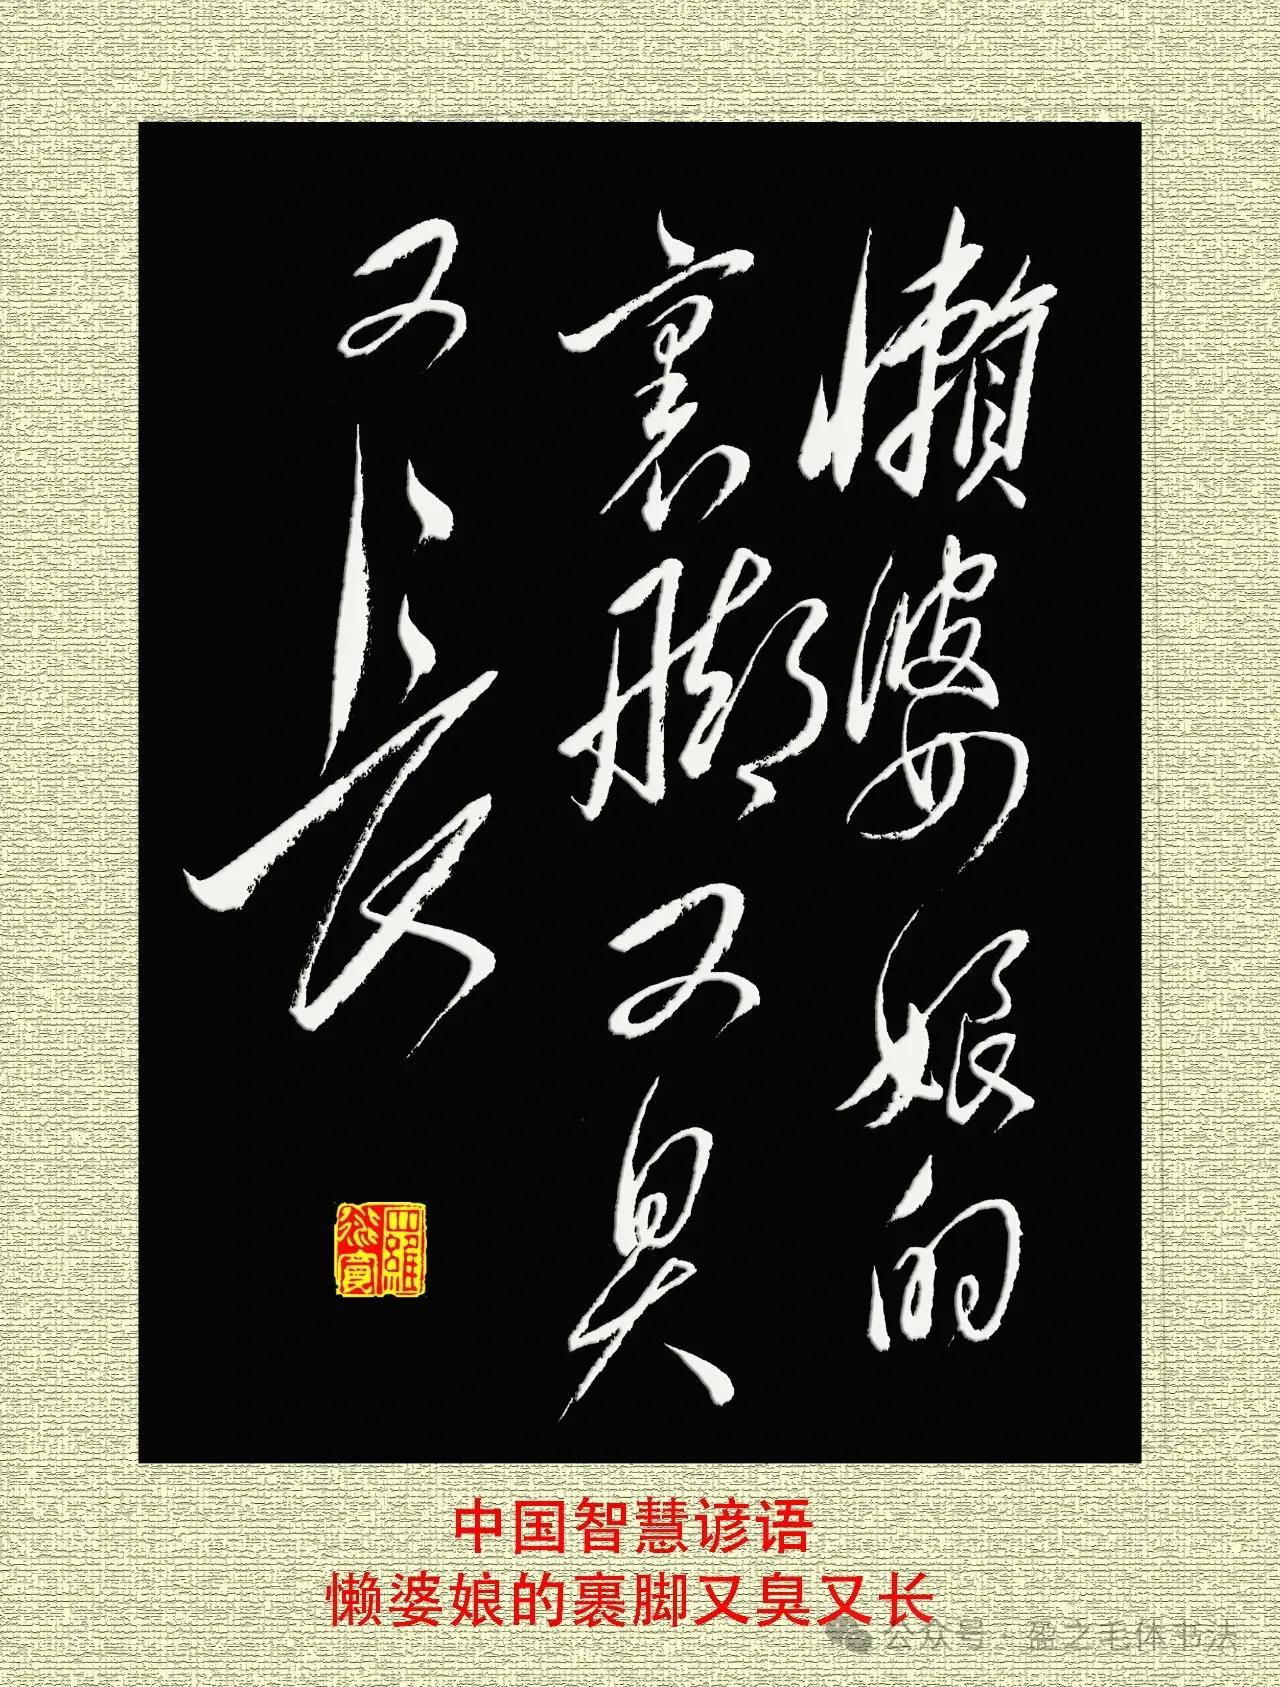 懒婆娘的
裹脚又臭
又长
中国智慧谚语
懒婆娘的裹脚又臭又长
公众号·盈之毛体书法